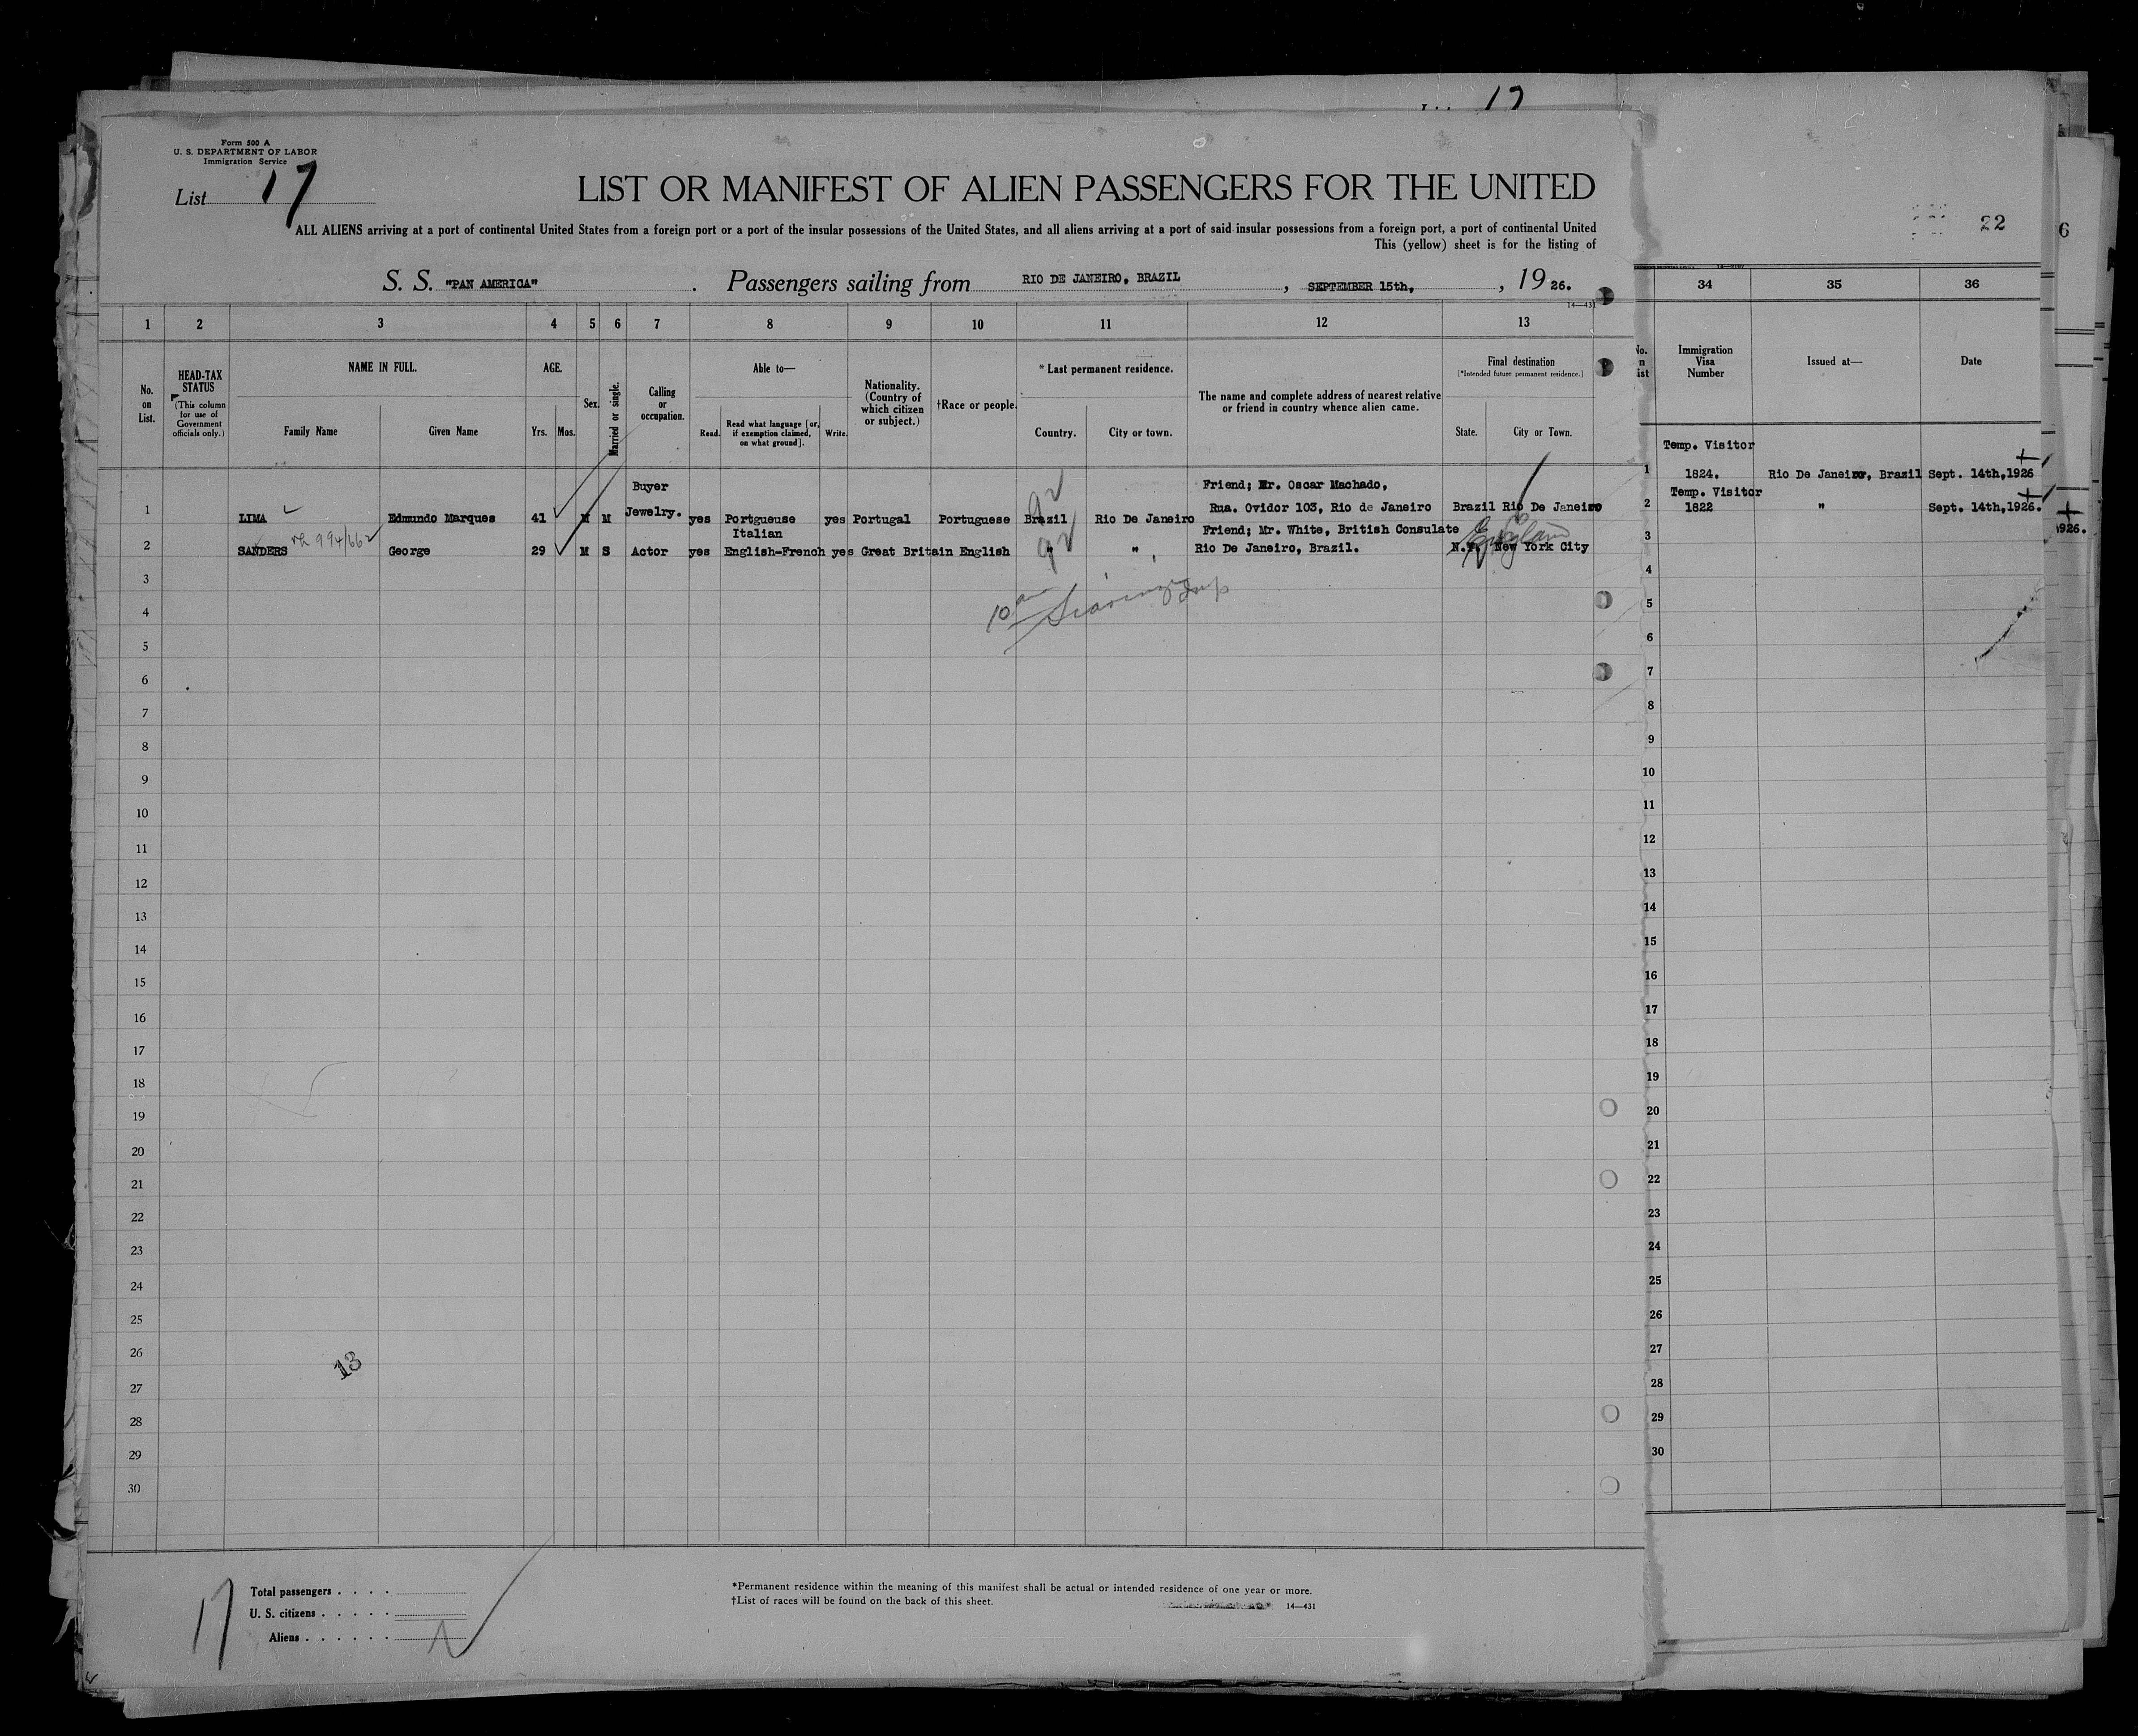 17
Form 500 A
U. S. DEPARTMENT OF LABOR
Immigration Service
List 17
LIST OR MANIFEST OF ALIEN PASSENGERS FOR THE UNITED
ALL ALIENS arriving at a port of continental United States from a foreign port or a port of the insular possessions of the United States, and all aliens arriving at a port of said insular possessions from a foreign port, a port of continental United
This (yellow) sheet is for the listing of
22
6
S. S. "PAN AMERICA" . Passengers sailing from RIO DE JANEIRO, BRAZIL , SEPTEMBER 15th, , 19 26.
14—431
1 2 3 4 5 6 7 8 9 10 11 12 13 34 35 36
No. on List.
HEAD-TAX STATUS
(This column for use of Government officials only.)
NAME IN FULL.
Family Name Given Name
AGE.
Yrs. Mos.
Sex.
Married or single.
Calling or occupation.
Able to—
Read. Read what language [or, if exemption claimed, on what ground]. Write.
Nationality. (Country of which citizen or subject.)
†Race or people.
* Last permanent residence.
Country. City or town.
The name and complete address of nearest relative or friend in country whence alien came.
Final destination
[*Intended future permanent residence.]
State. City or Town.
Immigration Visa Number
Issued at—
Date
1 LIMA Edmundo Marques 41 M M Buyer Jewelry. yes Portgueuse yes Portugal Portuguese Brazil Rio De Janeiro Friend; Mr. Oscar Machado, Rua. Ovidor 103, Rio de Janeiro Brazil Rio De Janeiro
1 Temp. Visitor 1824. Rio De Janeiro, Brazil Sept. 14th,1926
2 SANDERS 994/662 George 29 M S Actor yes Italian English-French yes Great Britain English " " Friend; Mr. White, British Consulate Rio De Janeiro, Brazil. N.Y. New York City England
2 Temp. Visitor 1822 " Sept. 14th,1926.
1926.
3
4
5
6
7
8
9
10
11
12
13
14
15
16
17
18
19
20
21
22
23
24
25
26
27
28
29
30
3
4
5
6
7
8
9
10
11
12
13
14
15
16
17
18
19
20
21
22
23
24
25
26
27
28
29
30
13
17
Total passengers . . . .
U. S. citizens . . . . .
Aliens . . . . . .
*Permanent residence within the meaning of this manifest shall be actual or intended residence of one year or more.
†List of races will be found on the back of this sheet.
14—431